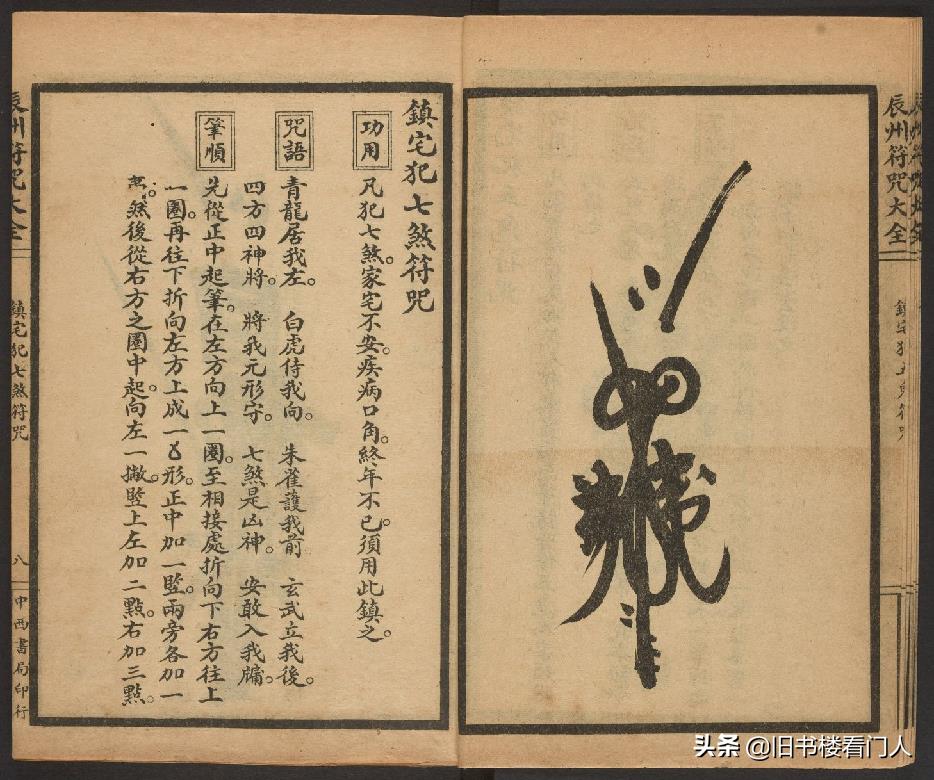 辰州符咒大全
鎮宅犯七煞符咒
辰州符咒大全
鎮宅犯七煞符咒
功用
凡犯七煞。家宅不安。疾病口角。終年不已。須用此鎮之。
咒語
青龍居我左。 白虎侍我向。 朱雀護我前 玄武立我後。
四方四神將。 將我元形守。 七煞是凶神。 安敢入我牖。
筆順
先從正中起筆。在左方向上一圈。至相接處折向下右方往上
一圈。再往下折向左方上成一形。正中加一豎。兩旁各加一
然後從右方之圈中起。向左一撇。豎上左加二點。右加三點。
辰州符咒大全
鎮宅犯七煞符咒
八
中西書局印行
头条 @旧书楼看门人